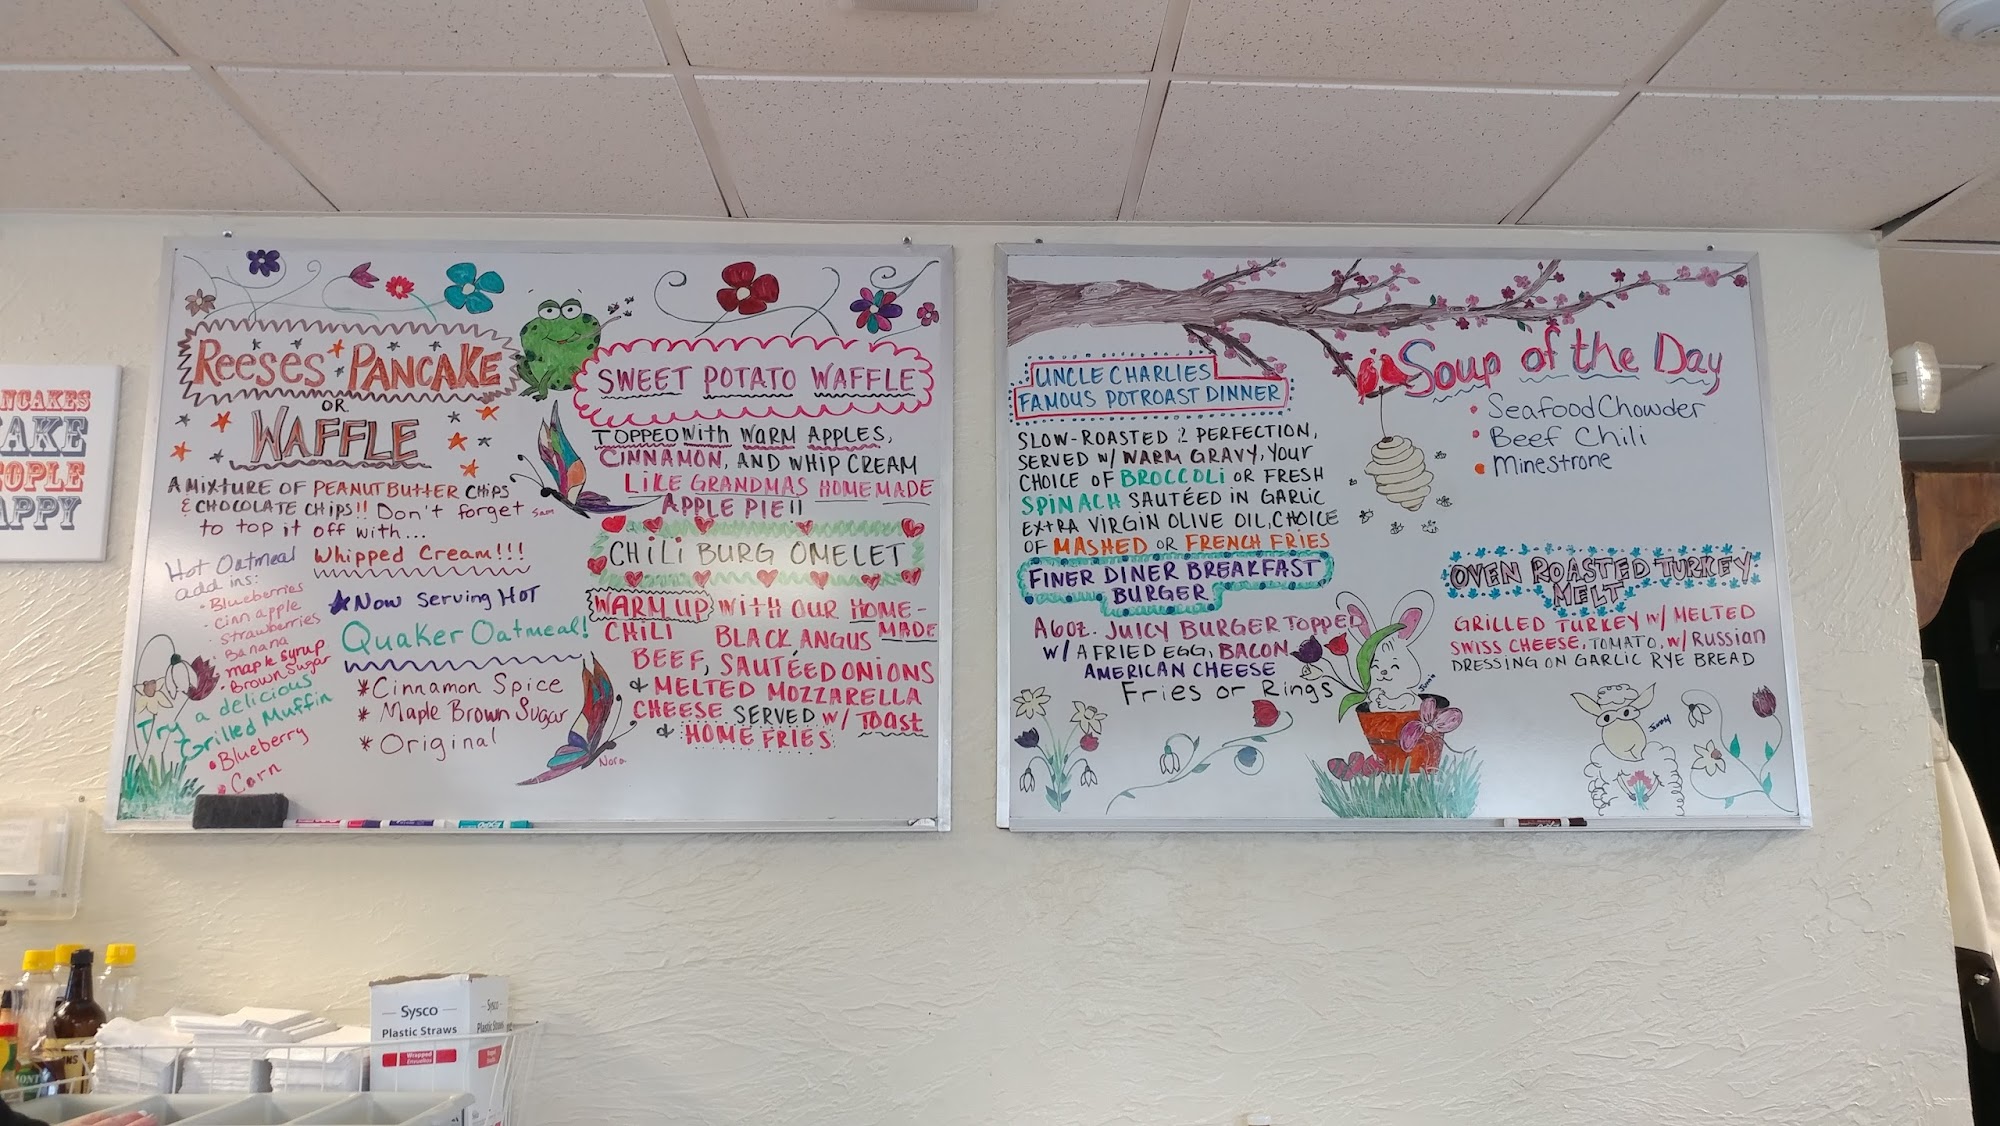 REESES PANCAKE
OR
WAFFLE
A MIXTURE OF PEANUT BUTTER CHIPS
& CHOCOLATE CHIPS!! Don't forget
to top it off with...
Whipped Cream!!!
Hot Oatmeal
add ins:
• Blueberries
• Cinn apple
• Strawberries
• Banana
• maple syrup
• Brown Sugar
Try a delicious
Grilled Muffin
• Blueberry
• Corn
★ Now Serving HOT
Quaker Oatmeal!
* Cinnamon Spice
* Maple Brown Sugar
* Original
SWEET POTATO WAFFLE
TOPPED with WARM APPLES,
CINNAMON, AND WHIP CREAM
LIKE GRANDMAS HOMEMADE
APPLE PIE!!
Sam
CHILI BURG OMELET
WARM UP WITH OUR HOME-
MADE
CHILI BLACK ANGUS
BEEF, SAUTÉED ONIONS
& MELTED MOZZARELLA
CHEESE SERVED W/ TOAST
& HOME FRIES
Nora
UNCLE CHARLIES
FAMOUS POTROAST DINNER
SLOW-ROASTED 2 PERFECTION,
SERVED W/ WARM GRAVY, YOUR
CHOICE OF BROCCOLI OR FRESH
SPINACH SAUTÉED IN GARLIC
EXTRA VIRGIN OLIVE OIL, CHOICE
OF MASHED OR FRENCH FRIES
FINER DINER BREAKFAST
BURGER
A 6oz. JUICY BURGER TOPPED
W/ A FRIED EGG, BACON
AMERICAN CHEESE
Fries or Rings
Soup of the Day
• Seafood Chowder
• Beef Chili
• Minestrone
OVEN ROASTED TURKEY
MELT
GRILLED TURKEY W/ MELTED
SWISS CHEESE, TOMATO, W/ RUSSIAN
DRESSING ON GARLIC RYE BREAD
AKE
APPY
Sysco
Plastic Straws
Wrapped